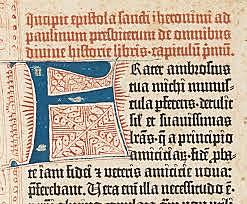 Incipit epistola sancti iheronimi ad
paulinum presbiterum de omnibus
divine historie libris. capitulū pmū.
Frater ambrosius
tua michi munus-
cula pferens. detulit
sil et suavissimas
lrās. q̄ a principio
amiciciaꝝ. fidē pba-
te iam fidei et veteris amicicie nova:
pferebant. Vera enī illa necessitudo ē.